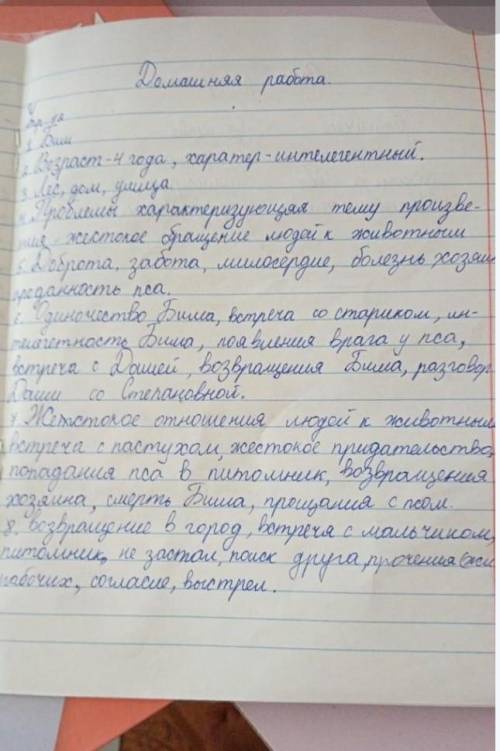 Домашняя работа.
1. Бим
2. Возраст-4 года, характер-интелегентный.
3. Лес, дом, улица.
4. Проблемы характеризующяя тему произве-
ния - жестокое бращение людай к животным
5. Доброта, забота, милосердие, болезнь хозяин
преданность пса.
6. Одиночество Бима, встреча со стариком, ин-
телегетность Бима, появления врага у пса,
встреча с Дашей, возвращения Бима, разговор
Даши со Степановной.
7. Жестокое отношения людей к животным
встреча с пастухом, жестокое придательство,
попадания пса в питомник, возвращения
хозяина, смерть Бима, прощания с псом.
8. Возвращение в город, встреча с мальчиком,
питомник, не застал, поиск друга, прочения
рабочих, согласие, выстрел.